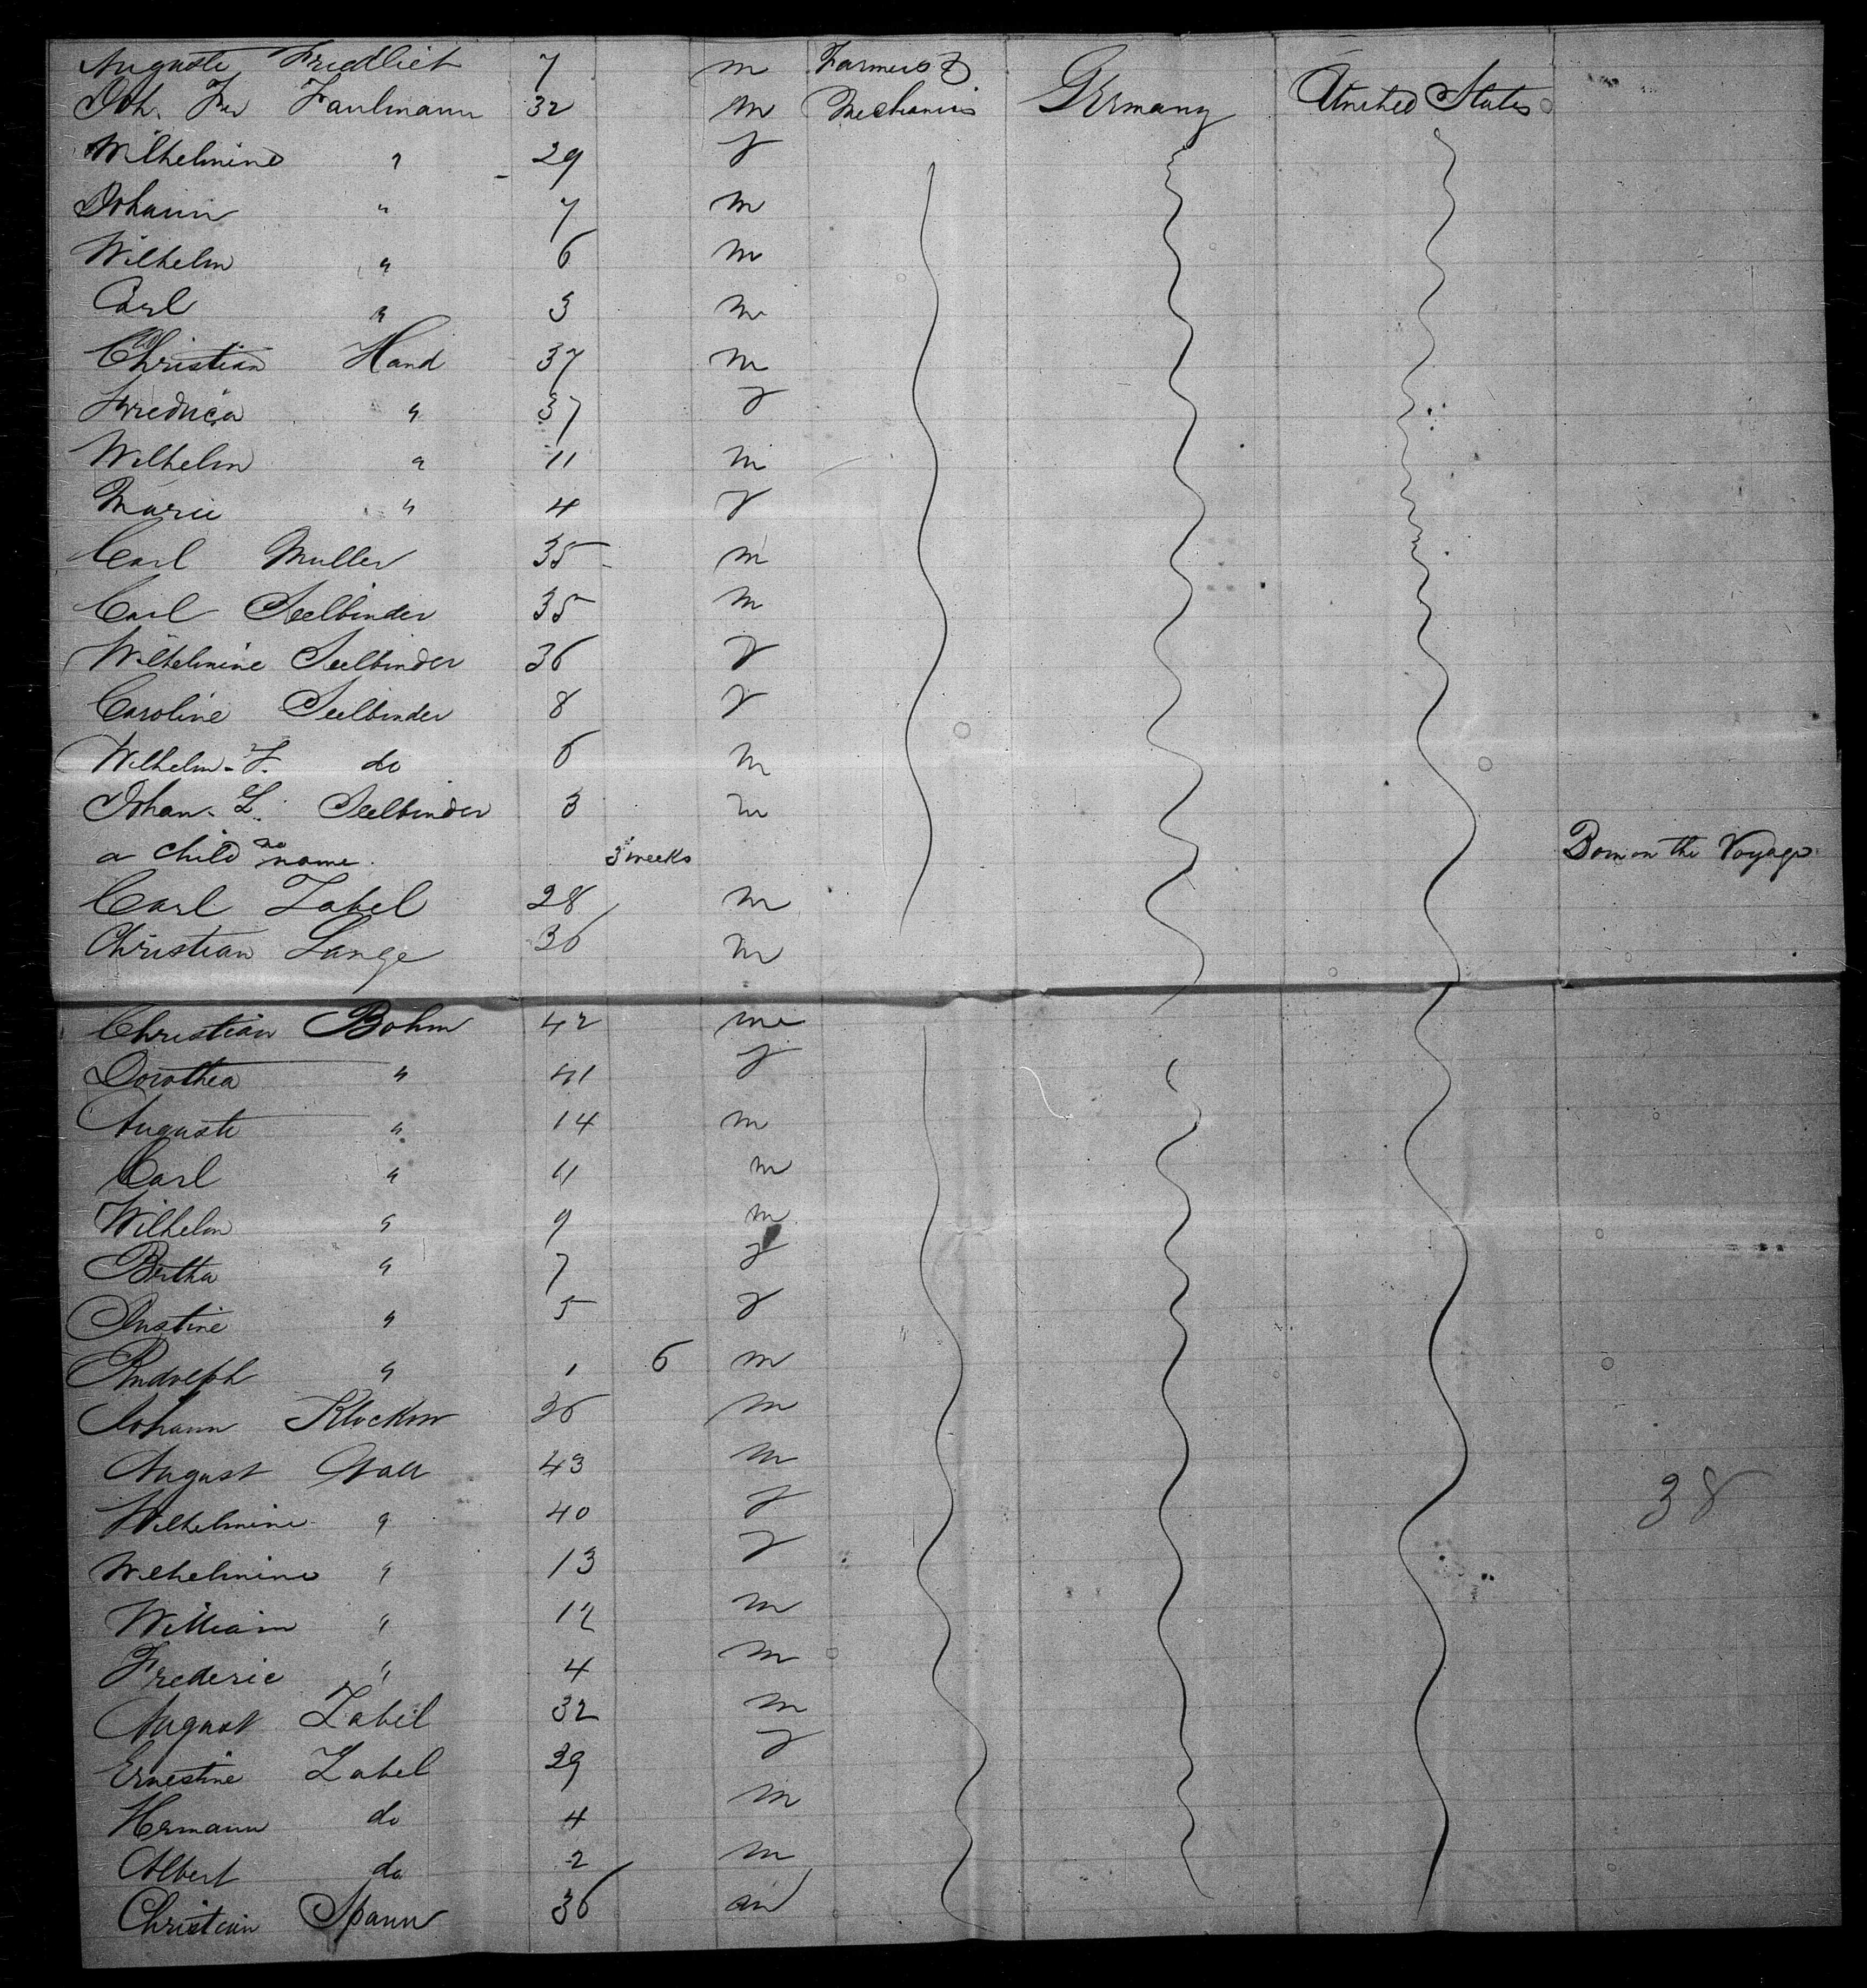 Auguste Friedlieb 7 m Farmers &
Joh. Fr. Faulmann 32 m Mechanics Germany United States
Wilhelmine " 29 f
Johann " 7 m
Wilhelm " 6 m
Carl " 3 m
Christian Hand 37 m
Fredrica " 37 f
Wilhelm " 11 m
Marie " 4 f
Carl Muller 35 m
Carl Seelbinder 35 m
Wilhelmine Seelbinder 36 f
Caroline Seelbinder 8 f
Wilhelm. F. do 6 m
Johan. L. Seelbinder 3 m
a child no name. 3 weeks Born on the Voyage
Carl Zabel 28 m
Christian Lange 36 m
Christian Bohm 42 m
Dorothea " 41 f
Auguste " 14 m
Carl " 11 m
Wilhelm " 9 m
Bertha " 7 f
Justine " 5 f
Rudolph " 1 6 m
Johann Klockow 36 m
August 43 m
Wilhelmine " 40 f 38
Wilhelmine " 13 f
William " 12 m
Frederic " 4 m
August Zabel 32 m
Ernestine Zabel 29 f
Hermann do 4 m
Albert do 2 m
Christian Spann 36 m